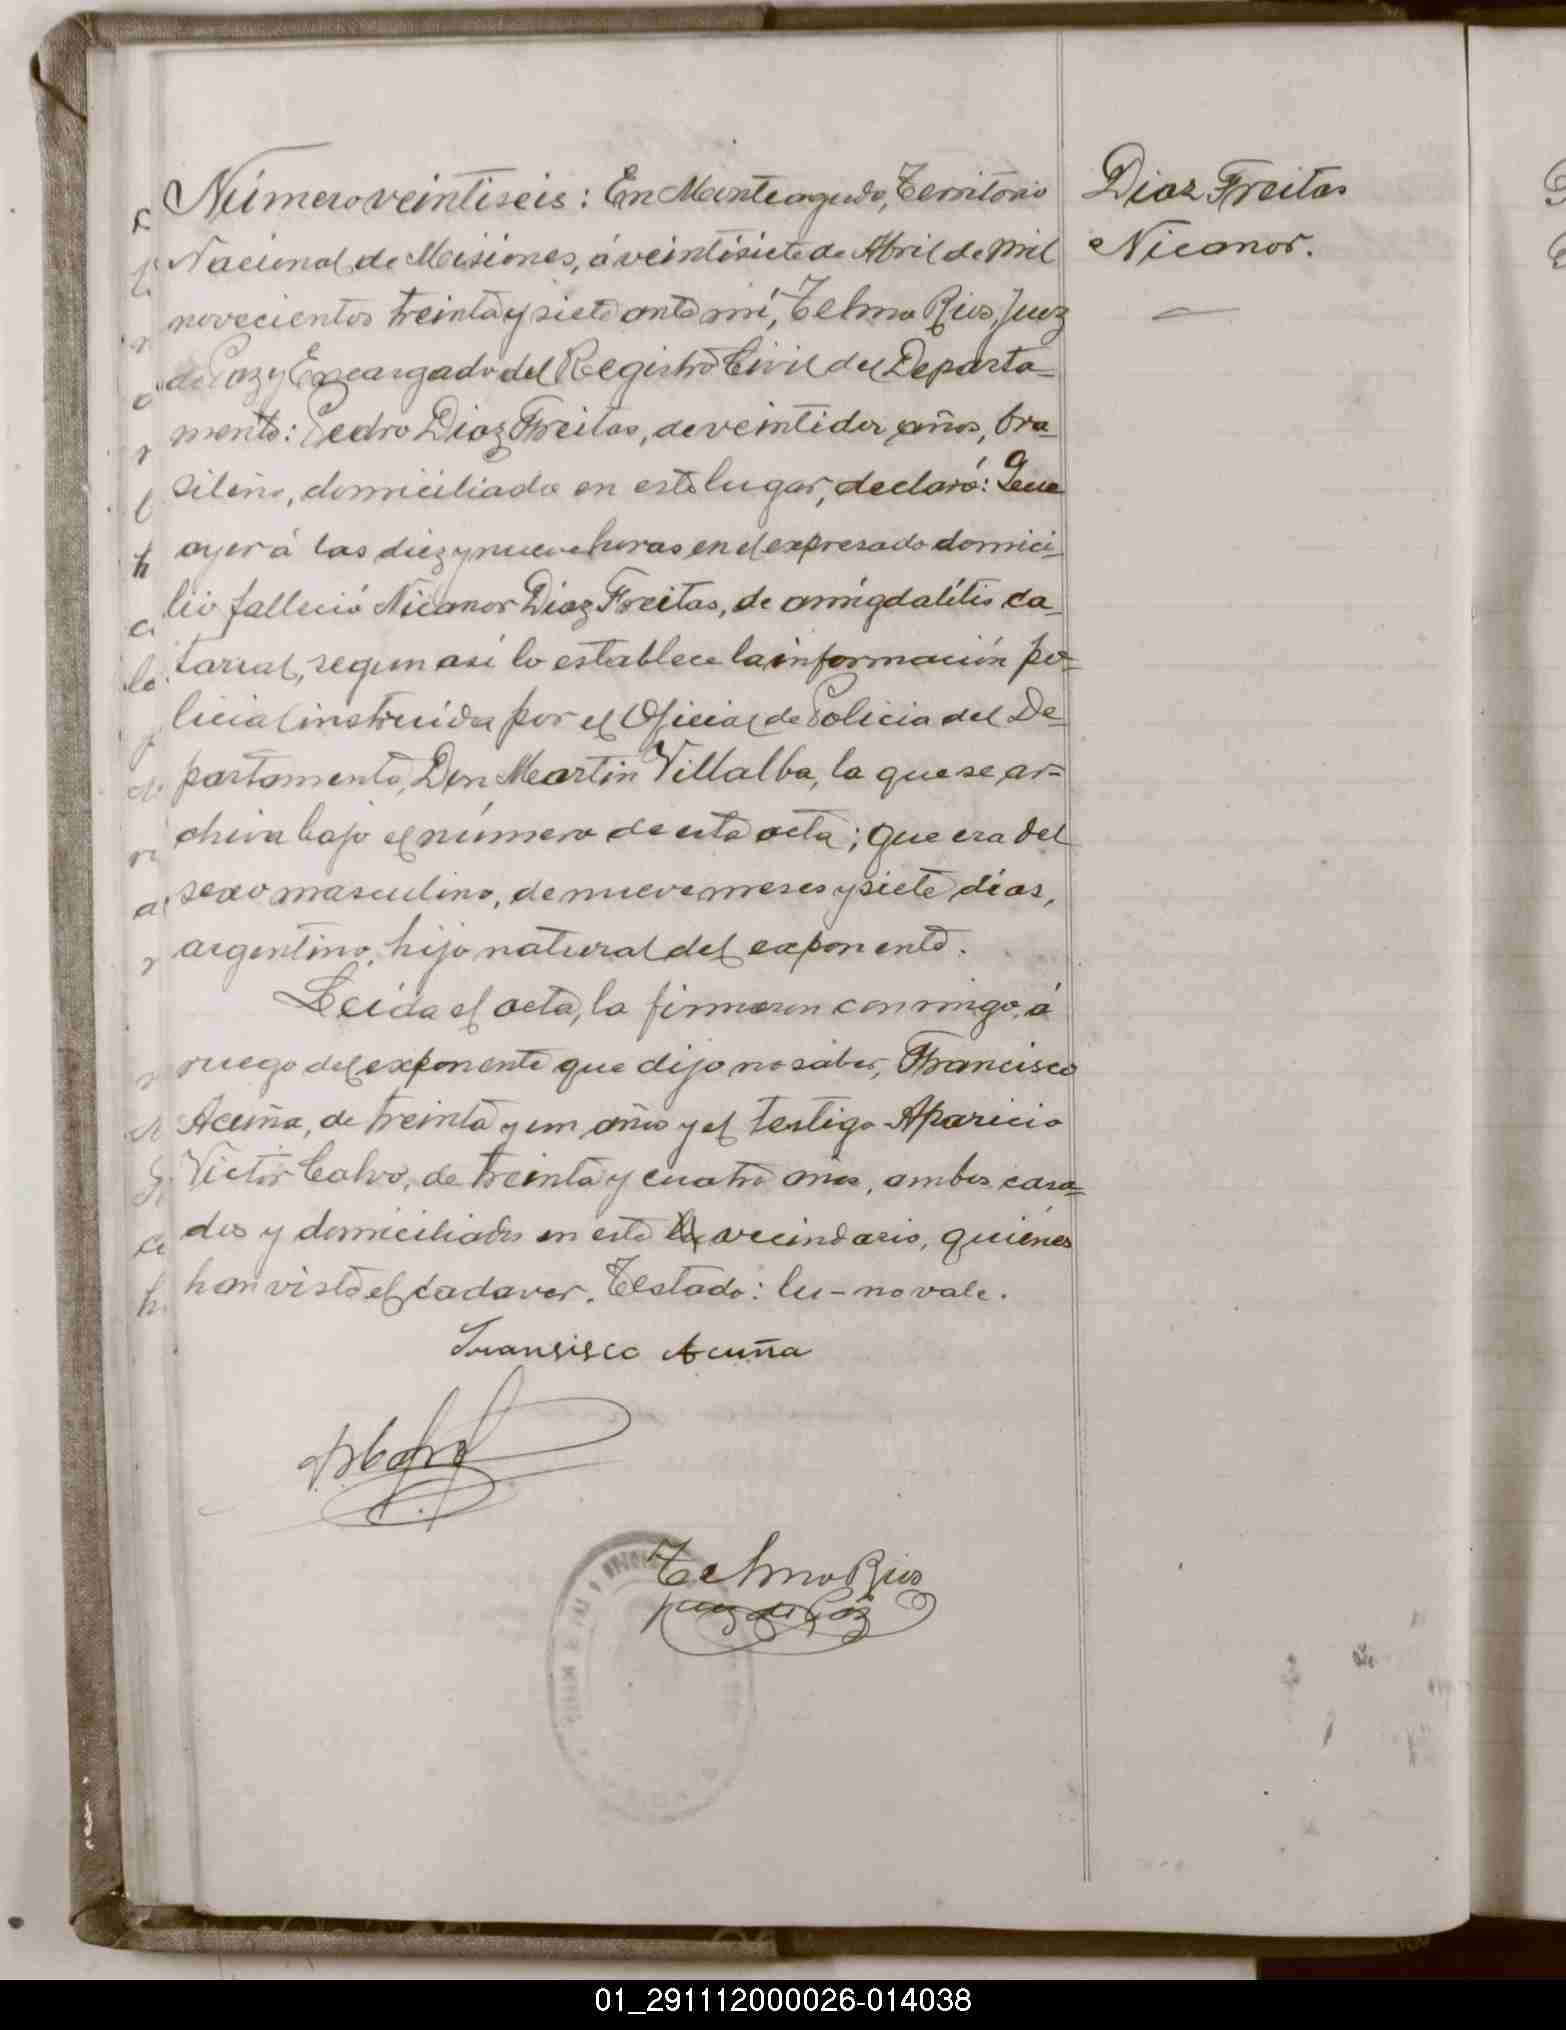 Número veintiseis: En Monteagudo, Territorio
Nacional de Misiones, á veintisiete de Abril de mil
novecientos treinta y siete ante mi, Telmo Rios, Juez
de Paz y Encargado del Registro Civil del Departa-
mento: Pedro Diaz Freitas, de veintidos años, bra-
sileño, domiciliado en este lugar, declaró: Que
ayer á las diez y nueve horas en el expresado domici-
lio falleció Nicanor Diaz Freitas, de amígdalitis ca-
tarral, segun asi lo establece la información po-
licial instruida por el Oficial de Policia del De-
partamento, Don Martin Villalba, la que se ar-
chiva bajo el número de esta acta; que era del
sexo masculino, de nueve meses y siete dias,
argentino, hijo natural del exponente.
Leida el acta, la firmaron conmigo, á
ruego del exponente que dijo no saber, Francisco
Acuña, de treinta y un años y el testigo Aparicio
Victor Calvo, de treinta y cuatro años, ambos casa-
dos y domiciliados en este vecindario, quiénes
han visto el cadaver. Testado: lu-no vale.
Fransisco Acuña
Telmo Rios
Juez de Paz
Diaz Freitas
Nicanor.
01_291112000026-014038